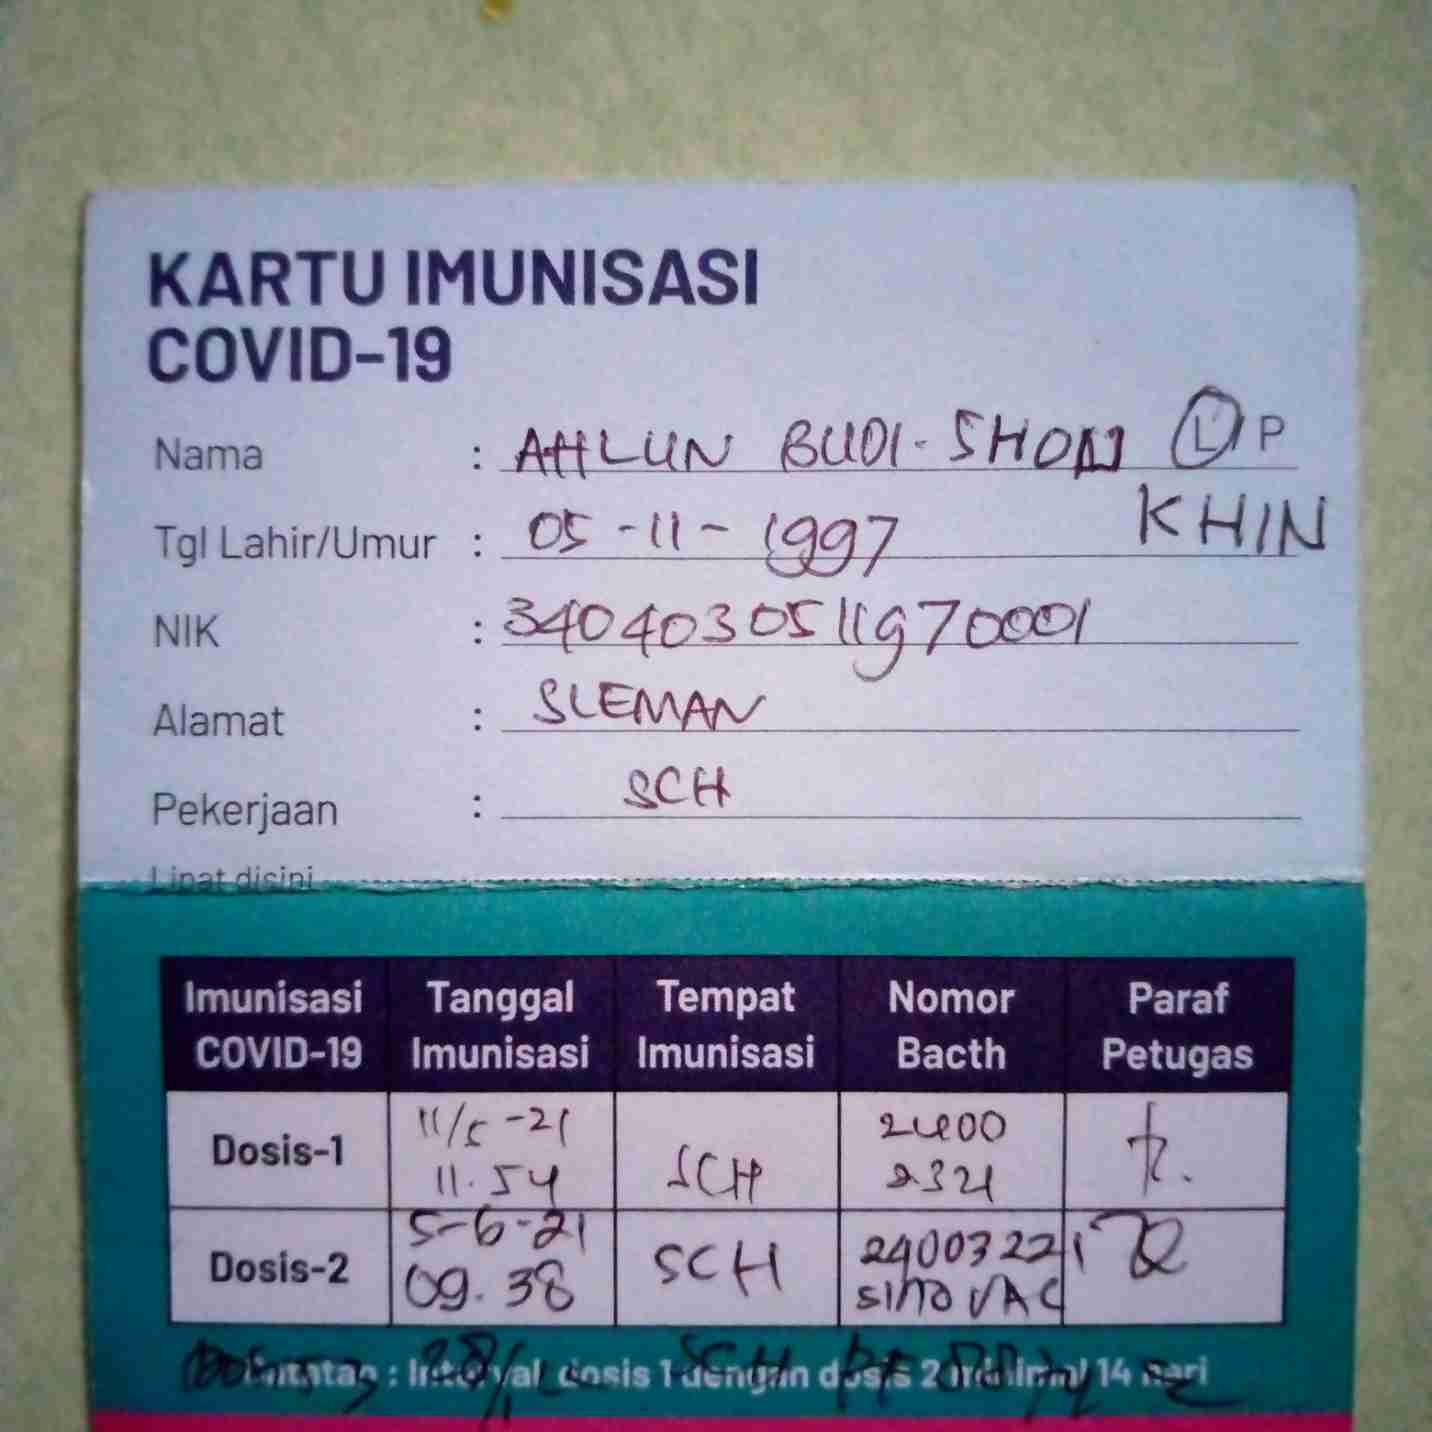 KARTU IMUNISASI
COVID-19
Nama : AHLUN BUDI-SHON L/P
KHIN
Tgl Lahir/Umur : 05-11-1997
NIK : 3404030511970001
Alamat : SLEMAN
Pekerjaan : SCH
Lipat disini
Imunisasi COVID-19 Tanggal Imunisasi Tempat Imunisasi Nomor Bacth Paraf Petugas
Dosis-1 11/5-21 11.54 SCH 2400 2321
Dosis-2 5-6-21 09.38 SCH 24003221 sinoVAC
Catatan : Interval dosis 1 dengan dosis 2 minimal 14 hari
SCH